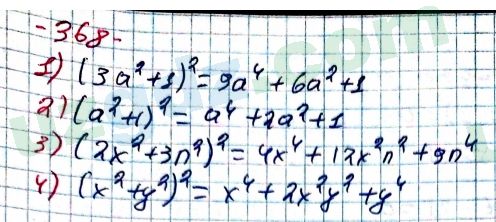 -368-
1) (3a²+1)²=9a⁴+6a²+1
2) (a²+1)²=a⁴+2a²+1
3) (2x²+3n²)²=4x⁴+12x²n²+9n⁴
4) (x²+y²)²=x⁴+2x²y²+y⁴